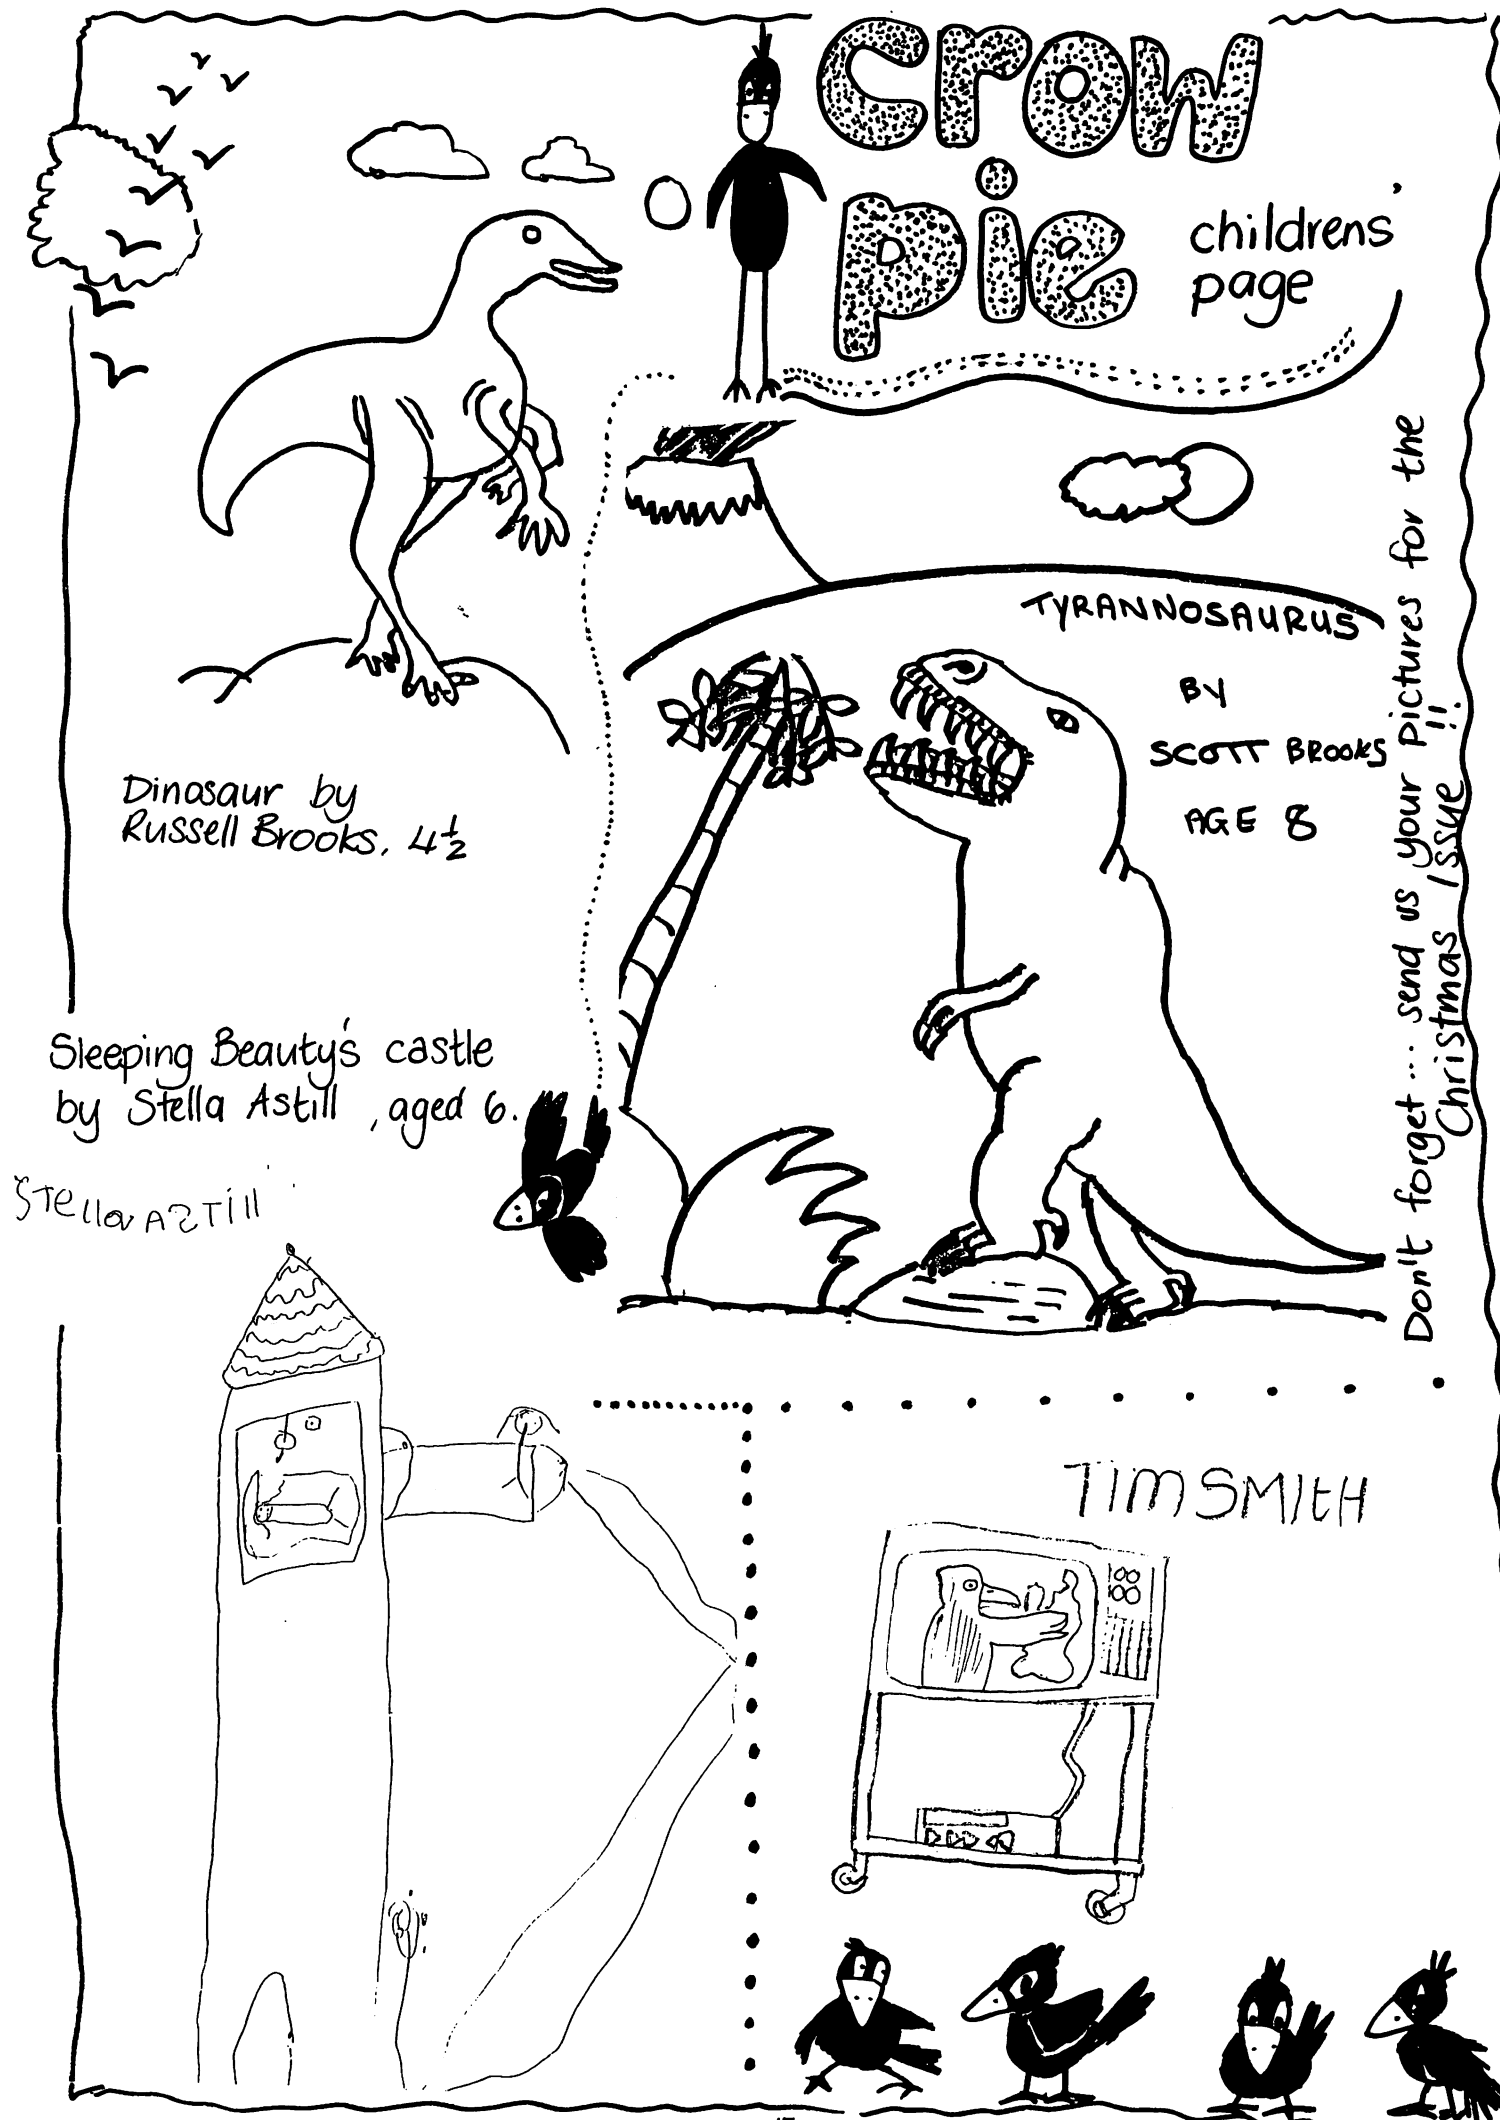 crow
pie
childrens'
page
Dinosaur by
Russell Brooks. 4½
TYRANNOSAURUS
BY
SCOTT BROOKS
AGE 8
Don't forget .... send us your pictures for the
Christmas Issue !!
Sleeping Beauty's castle
by Stella Astill, aged 6.
Stella ASTill
TIM SMITH